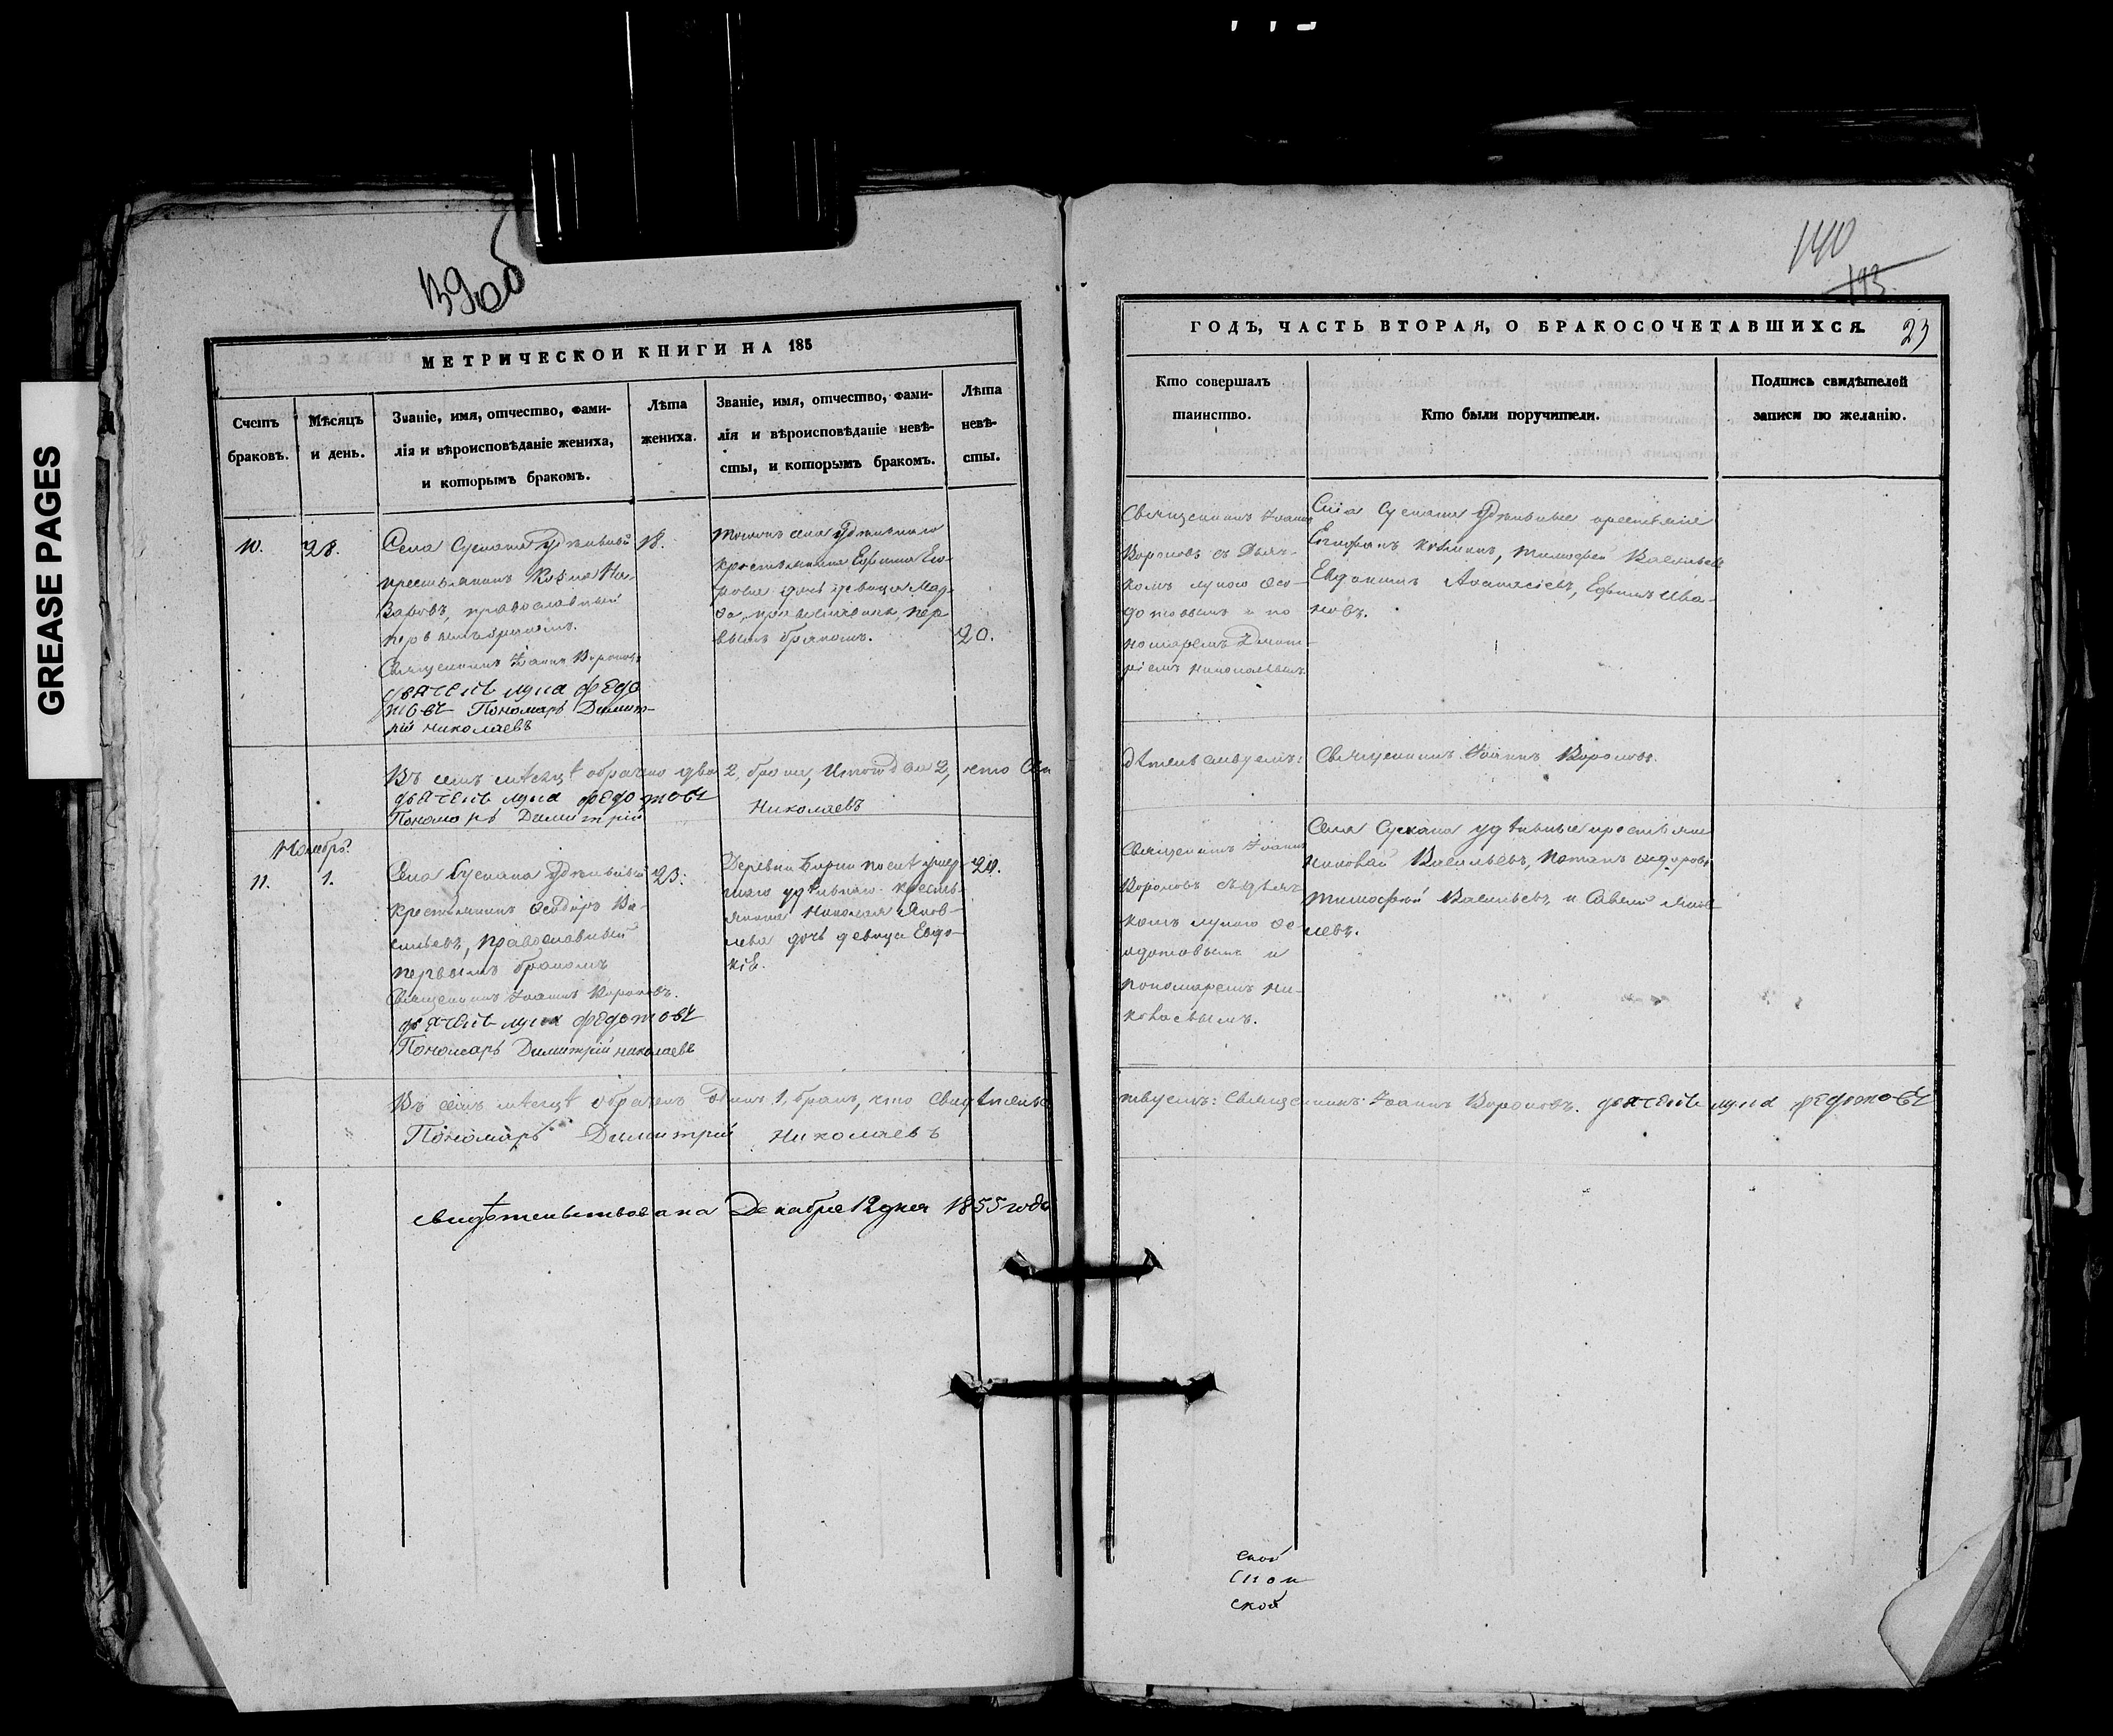 GREASE PAGES
139об
МЕТРИЧЕСКОЙ КНИГИ НА 185
Счетъ
браковъ.
Мѣсяцъ
и день.
Званіе, имя, отчество, фами-
лія и вѣроисповѣданіе жениха,
и которымъ бракомъ.
Лѣта
жениха.
Званіе, имя, отчество, фами-
лія и вѣроисповѣданіе невѣ-
сты, и которымъ бракомъ.
Лѣта
невѣ-
сты.
10.
28.
Села Сускана Удѣльный
крестьянинъ Козма На-
заровъ, православный
первымъ бракомъ.
Священникъ Іоаннъ Вороновъ
дьячекъ лука федо
товъ Пономарь Димит-
рій николаевъ
18.
тогожъ села Удѣльнаго
крестьянина Ефима
дочь девица
православная, пер
вымъ бракомъ.
20.
Въ семъ месяцѣ обрачено два 2, брака, Итого два 2, что сви
дьячекъ лука федотовъ
Пономарь Димитрій Николаевъ
Ноябрь.
11.
1.
Села Сускана Удѣльный
крестьянинъ Ѳеодоръ Ва-
сильевъ, православный
первымъ бракомъ
Священникъ Іоаннъ Вороновъ.
дьячекъ лука федотовъ
Пономарь Димитрій николаевъ
23.
Деревни
удѣльнаго кресть-
янина Николая Яков-
лева дочь девица Евдо-
кія.
20.
Въ семъ месяцѣ обраченъ Одинъ 1. бракъ, что свидѣтельс
Пономарь Димитрій Николаевъ
свидѣтельствована Декабря 12 дня 1855 года
140
193.
23
ГОДЪ, ЧАСТЬ ВТОРАЯ, О БРАКОСОЧЕТАВШИХСЯ.
Кто совершалъ
таинство.
Кто были поручители.
Подпись свидѣтелей
записи по желанію.
Священникъ Іоаннъ
Вороновъ съ Дьяч-
комъ лукою Ѳео-
дотовымъ и по
номаремъ Димит-
ріемъ николаевымъ
Села Сускана Удѣльные крестьяне
Козминъ, тимофей Васильевъ
Евдокимъ Афанасіевъ, Ефимъ Ива-
новъ.
дѣтельствуемъ: Священникъ Іоаннъ Вороновъ.
Священникъ Іоаннъ
Вороновъ съ дьяч-
комъ лукою Ѳе-
одотовымъ и
пономаремъ ни-
колаевымъ.
Села Сускана удѣльные крестьяне
николай Васильевъ, Потапъ сидоровъ
тимофей Васильевъ и Савелій Яков
левъ.
твуемъ: Священникъ Іоаннъ Вороновъ. дьячекъ лука федотовъ
ской
ской